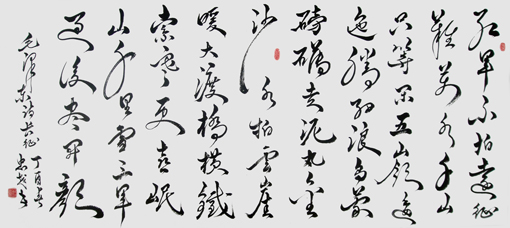 红軍不怕遠征
難萬水千山
只等闲五嶺逶
迤騰細浪烏蒙
磅礴走泥丸金
沙水拍雲崖
暖大渡橋横鐵
索寒更喜岷
山千里雪三軍
過後盡開顔
毛澤東詩長征
丁酉